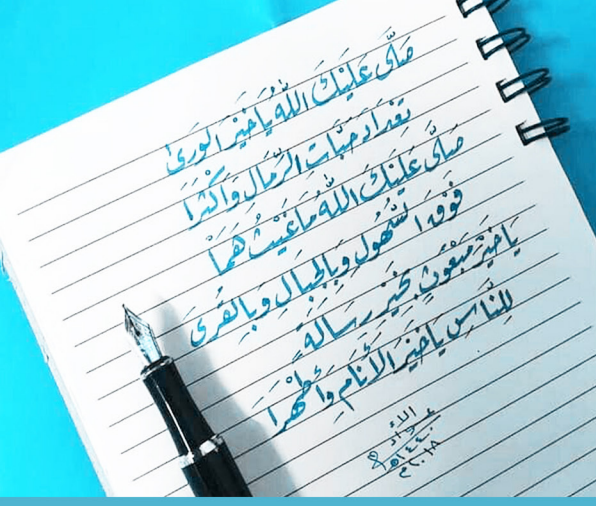 صَلَّى عَلَيْكَ اللهُ يَا خَيْرَ الوَرَىٰ
تَعْدَادَ حَبَّاتِ الرِّمَالِ وَأَكْثَرَا
صَلَّى عَلَيْكَ اللهُ مَا غَيْثٌ هَمَا
فَوْقَ السُّهُولِ وَبِالجِبَالِ وَبِالقُرَى
يَا خَيْرَ مَبْعُوثٍ بِخَيْرِ رِسَالَةٍ
لِلنَّاسِ يَا خَيْرَ الأَنَامِ وَأَطْهَرَا
١٤٤٠هـ
٢٠١٨م